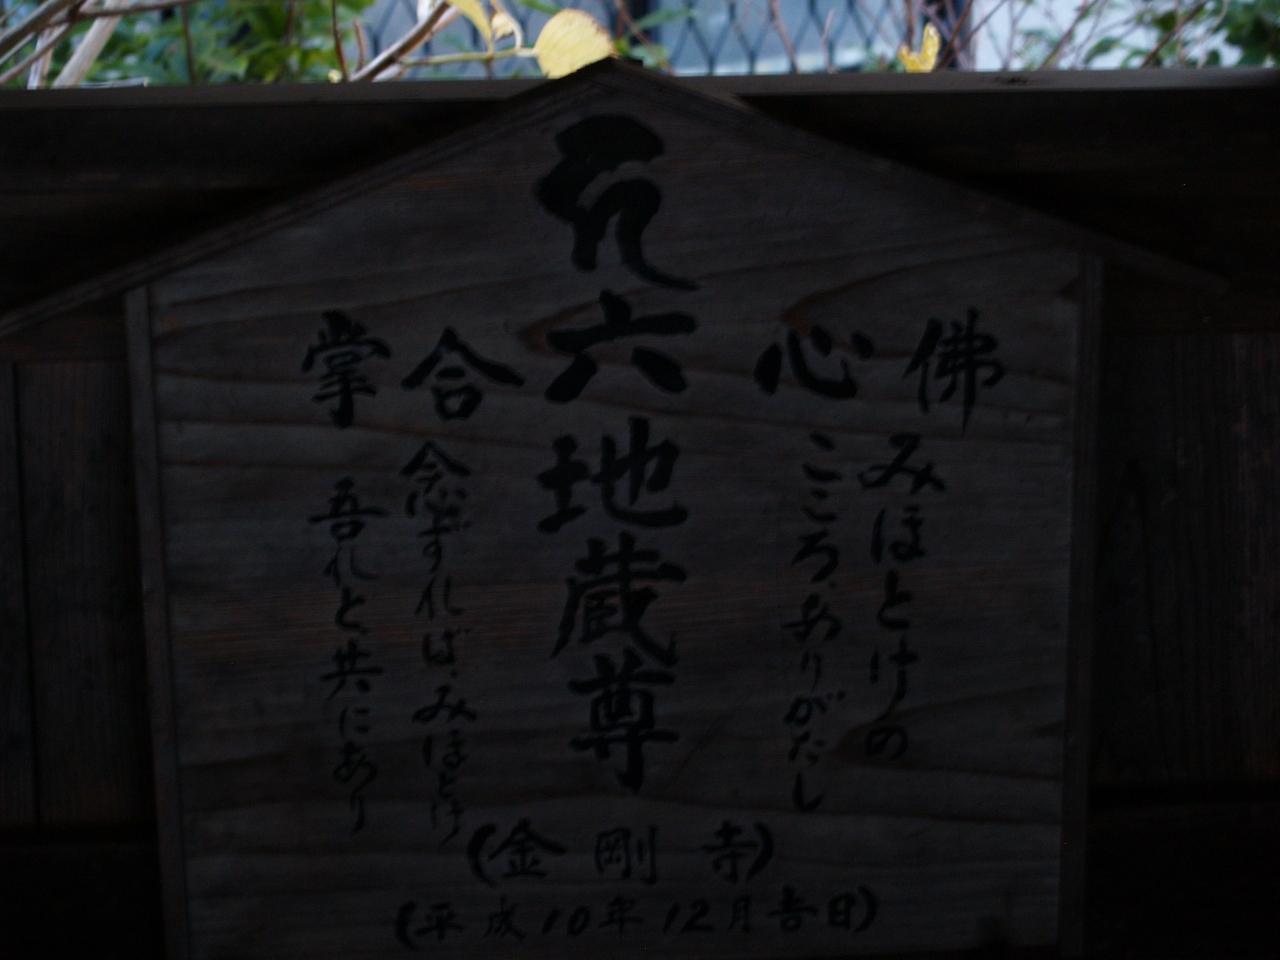 佛心
みほとけの
こころ、ありがたし
六地蔵尊
合掌
念ず礼ば、みほとけ
吾れと、共にあり
(金剛寺)
(平成10年12月吉日)